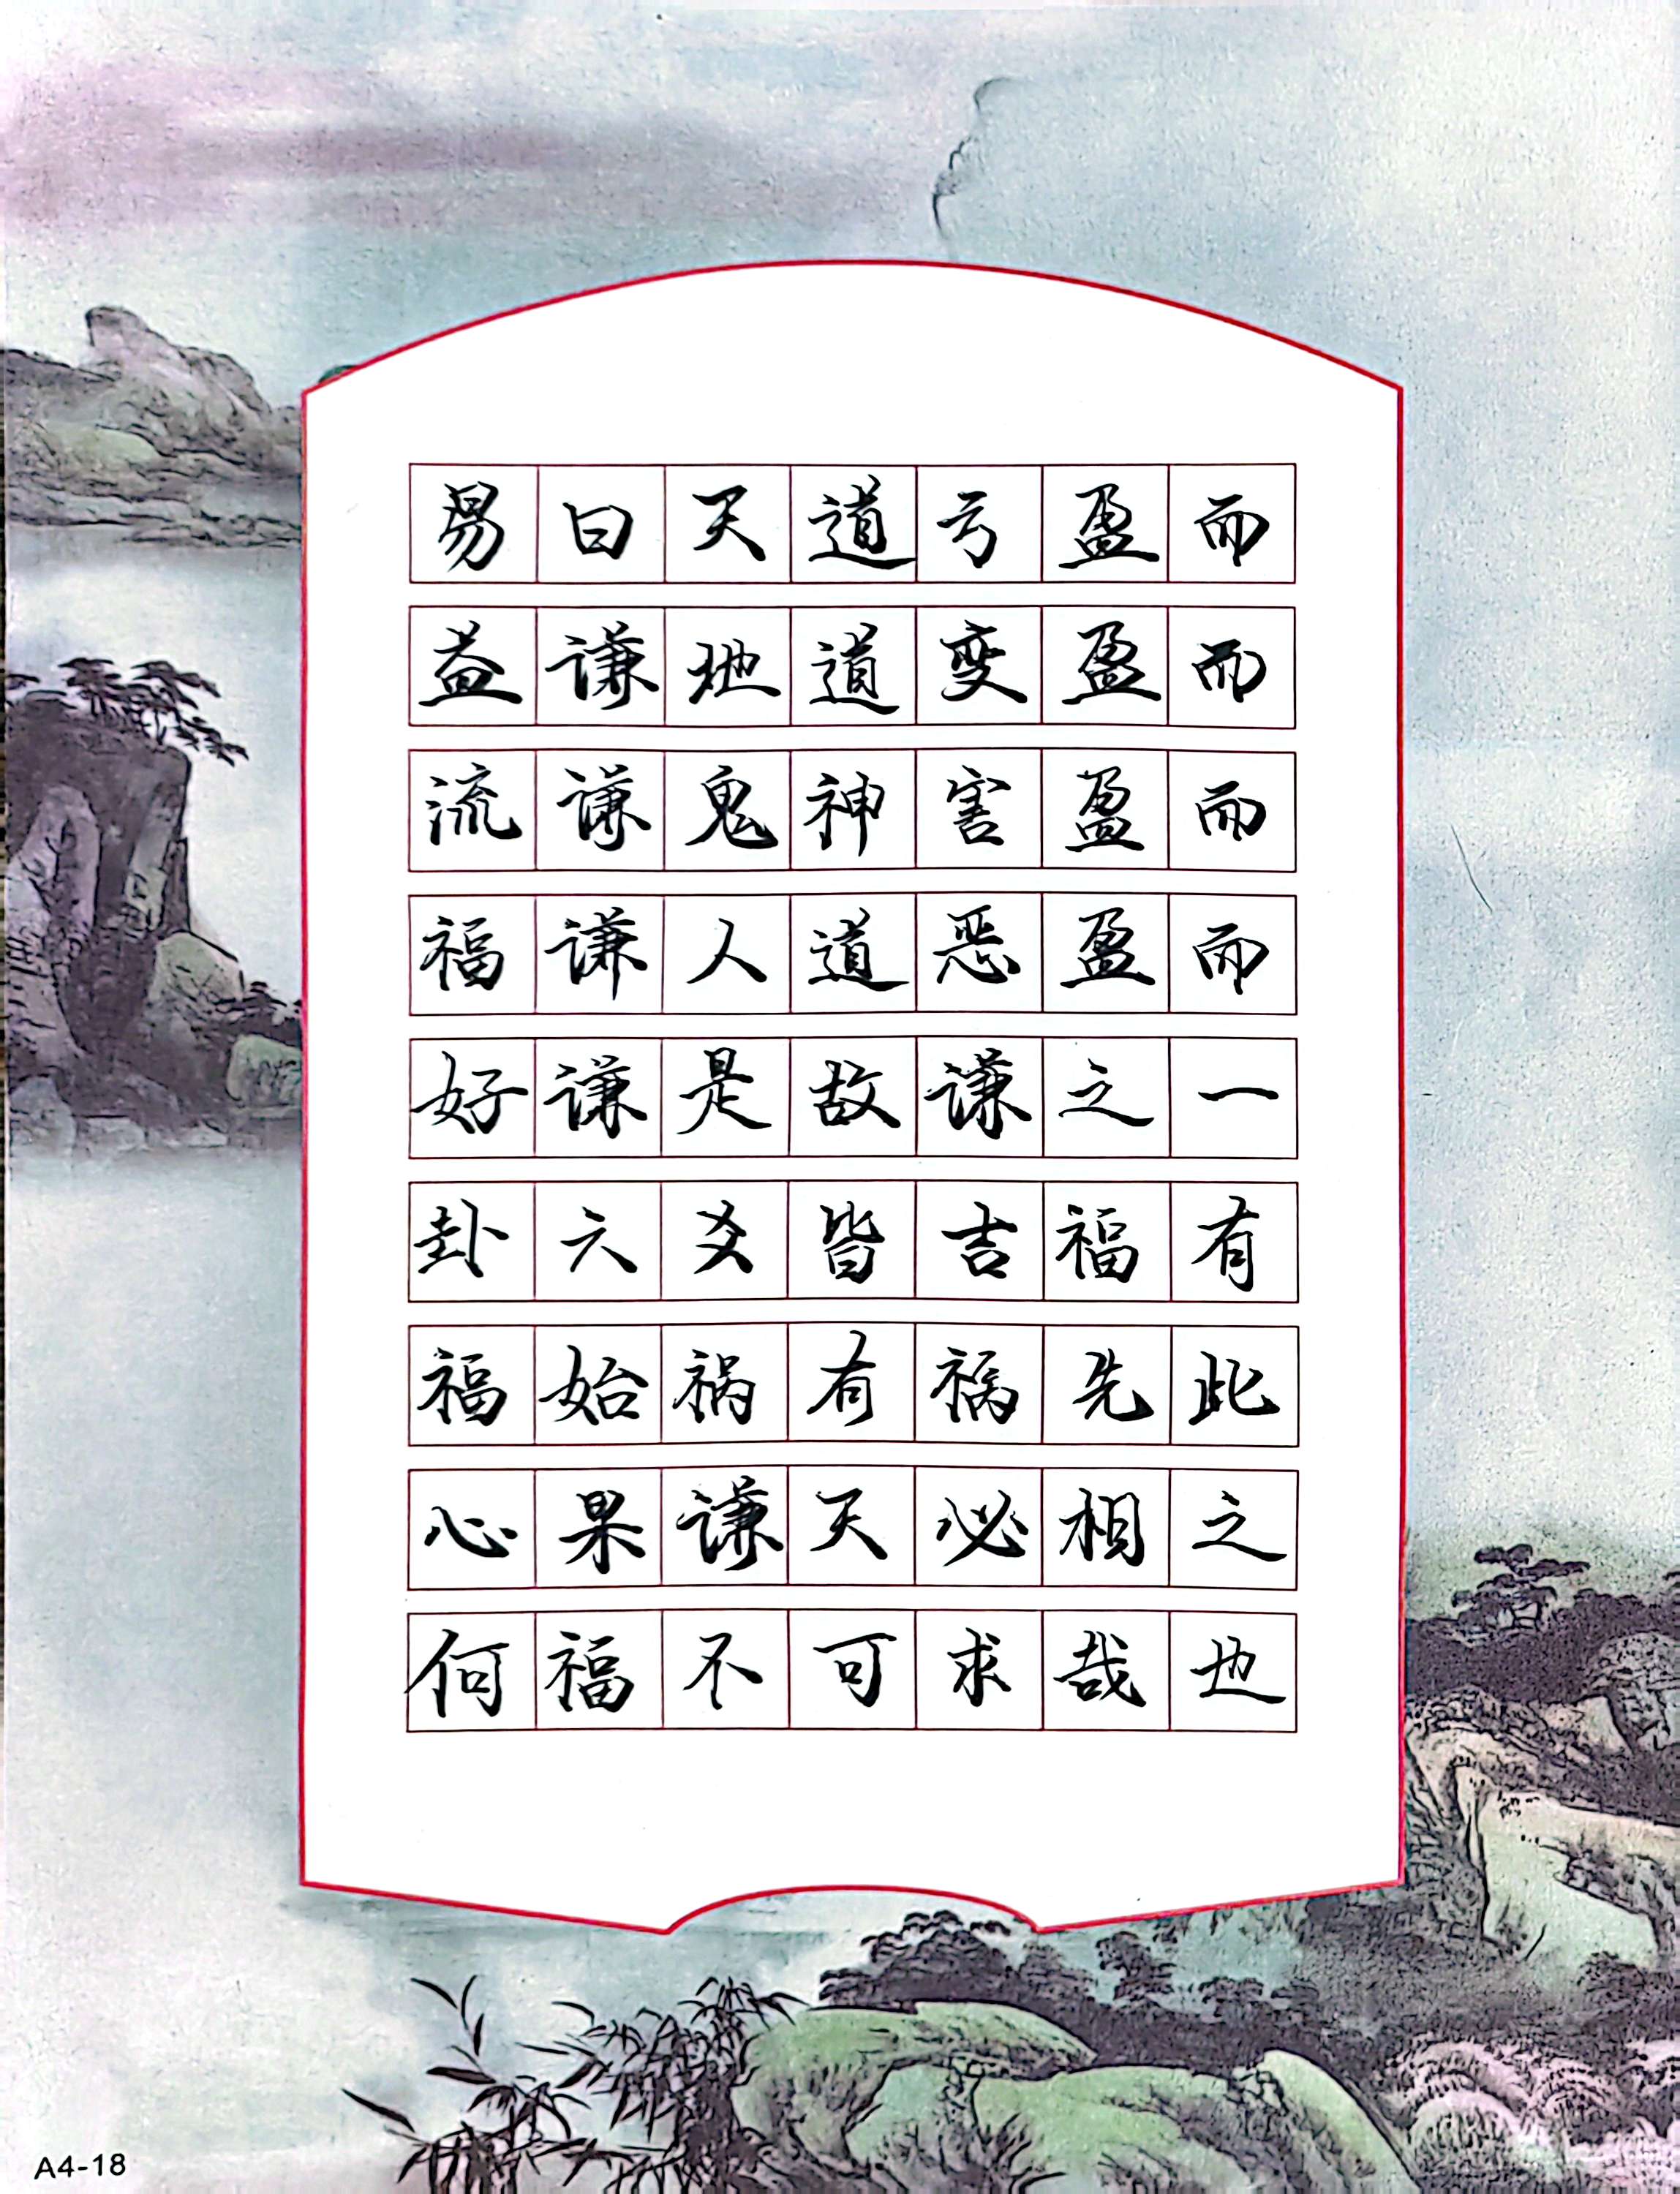 易曰天道亏盈而
益谦地道变盈而
流谦鬼神害盈而
福谦人道恶盈而
好谦是故谦之一
卦六爻皆吉福有
福始祸有祸先此
心果谦天必相之
何福不可求哉也
A4-18